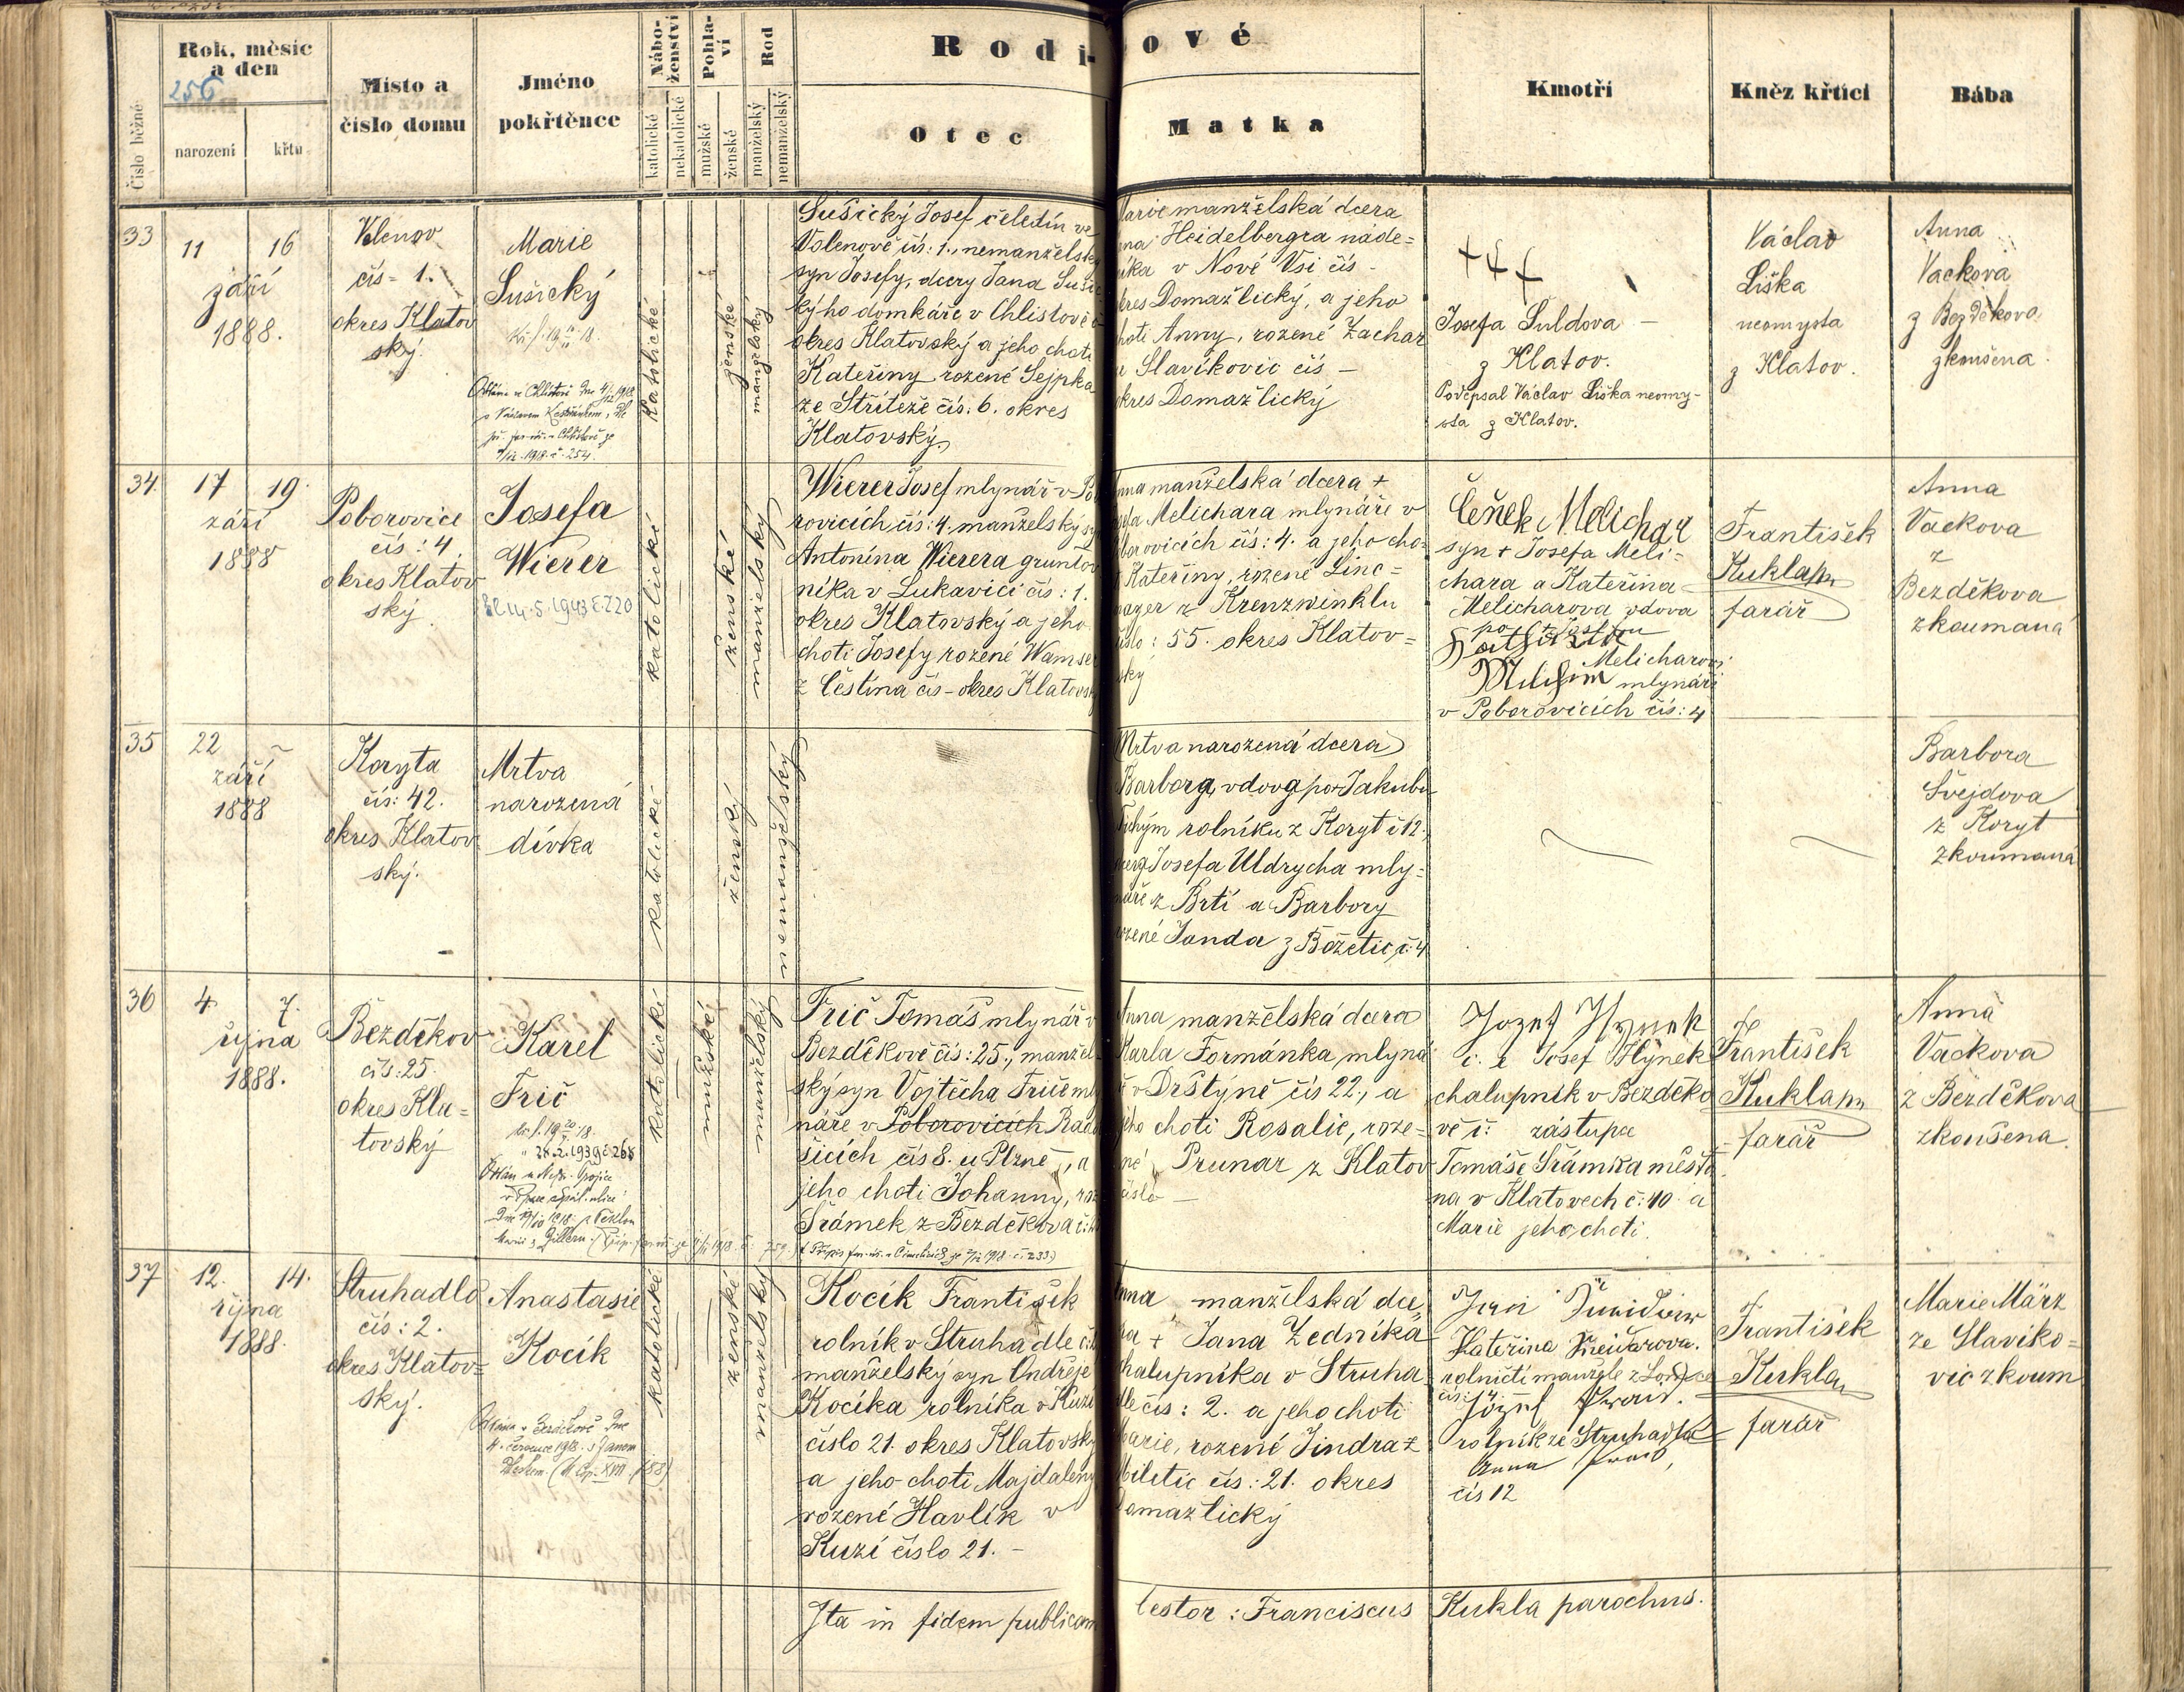 Rok, měsíc
a den
256
narození
křtu
Číslo běžné
Místo a
číslo domu
Jméno
pokřtěnce
Nábo-
ženství
katolické
nekatolické
Pohla-
ví
mužské
ženské
Rod
manželský
nemanželský
Rodi-
ové
Otec
Matka
Kmotři
Kněz křtící
Bába
33
11
16
září
1888.
čís - 1.
okres Klatov
ský.
Marie
Sušický
katolické
ženské
manželský
Sušický Josef čeledín ve
Volenově čís: 1., nemanželsk
syn Josefy, dcery Jana Suši
kýho domkáře v Chlistově
okres Klatovský a jeho choti
Kateřiny rozené Sejpka
ze Stříteže čís. 6. okres
Klatovský.
arie manželská dcera
na Heidelbergra náde=
íka v Nové Vsi čís -
kres Domažlický, a jeho
hoti Anny, rozené Zachar
Slavíkovic čís -
kres Domažlický
+++
Josefa Suldova -
z Klatov.
Podepsal Václav Liška neomy-
sta z Klatov.
Václav
Liška
neomysta
z Klatov.
Anna
Vackova
z Bezděkova
zkoušena.
34.
17
19.
září
1888
Poborovice
čís: 4.
okres Klatov
ský
Josefa
Wierer
katolické
ženské
manželský
Wierer Josef mlynář v Po
rovicích čís: 4. manželský sy
Antonína Wierera gruntov
níka v Lukavici čís: 1.
okres Klatovský a jeho
choti Josefy rozené Wamser
z Čestína čís - okres Klatovsk
nna manželská dcera +
sefa Melichara mlynáře v
borovicích čís: 4. a jeho cho-
Kateřiny, rozené Linc=
z Krenzwinklu
íslo: 55. okres Klatov=
ský
Čeněk Melichar
syn + Josefa Meli=
chara a Kateřina
Melicharova vdova
Melicharovi
mlynáři
v Poborovicích čís: 4
František
Kukla
farář
Anna
Vackova
z
Bezděkova
zkoumaná
35
22
~
září
1888
Koryta
čís: 42.
okres Klatov
ský.
Mrtva
narozená
dívka
katolické
ženský
nemanželský
Mrtva narozená dcera
Barbory, vdovy po Jakubu
Tichým rolníku z Koryt č 12.,
cery Josefa Uldrycha mly=
náře z Brtí a Barbory
ozené Janda z Božetic, č: 4
Barbora
Švejdova
z Koryt
zkoumaná
36
4.
7.
října
1888.
Bezděkov
čís: 25.
okres Kla=
tovský
Karel
Frič
katolické
mužské
manželský
Frič Tomáš mlynář v
Bezděkově čís: 25., manžel-
ský syn Vojtěcha Friče ml
náře v Poborovicích Rad
šicích čís 8. u Plzně, a
jeho choti Johanny, roz
Srámek z Bezděkova č:
Anna manželská dcera
Karla Formánka mlyná
v Drštýně čís 22., a
jeho choti Rosalie, roze-
né Prunar z Klatov
číslo -
Jozef Hynek
č. 2 Josef Hynek
chalupník v Bezděko
vě č: zástupce
Tomáše Srámka měšťa
na v Klatovech č: 10. a
Marie jeho choti.
František
Kukla
farář
Anna
Vackova
z Bezděkova
zkoušena.
37
12.
14.
října
1888.
Struhadlo
čís: 2.
okres Klatov=
ský.
Anastasie
Kocík
katolické
ženské
manželský
Kocík František
rolník v Struhadle č:
manželský syn Ondřeje
Kocíka rolníka v Kuzí
číslo 21. okres Klatovsk
a jeho choti Majdaleny
rozené Havlík v
Kuzí číslo 21. -
nna manželská dce
ra + Jana Zedníka
halupníka v Struha
dle čís: 2. a jeho choti
Marie, rozené Jindra z
Miletic čís: 21. okres
omažlický
Kateřina
rolničtí manžele z
čís:
Józef
rolník ze Struhadla
Anna
čís 12
František
Kukla
farář
Marie März
ze Slavíko=
vic zkoum
Ita in fidem publicam
testor: Franciscus Kukla parochus.